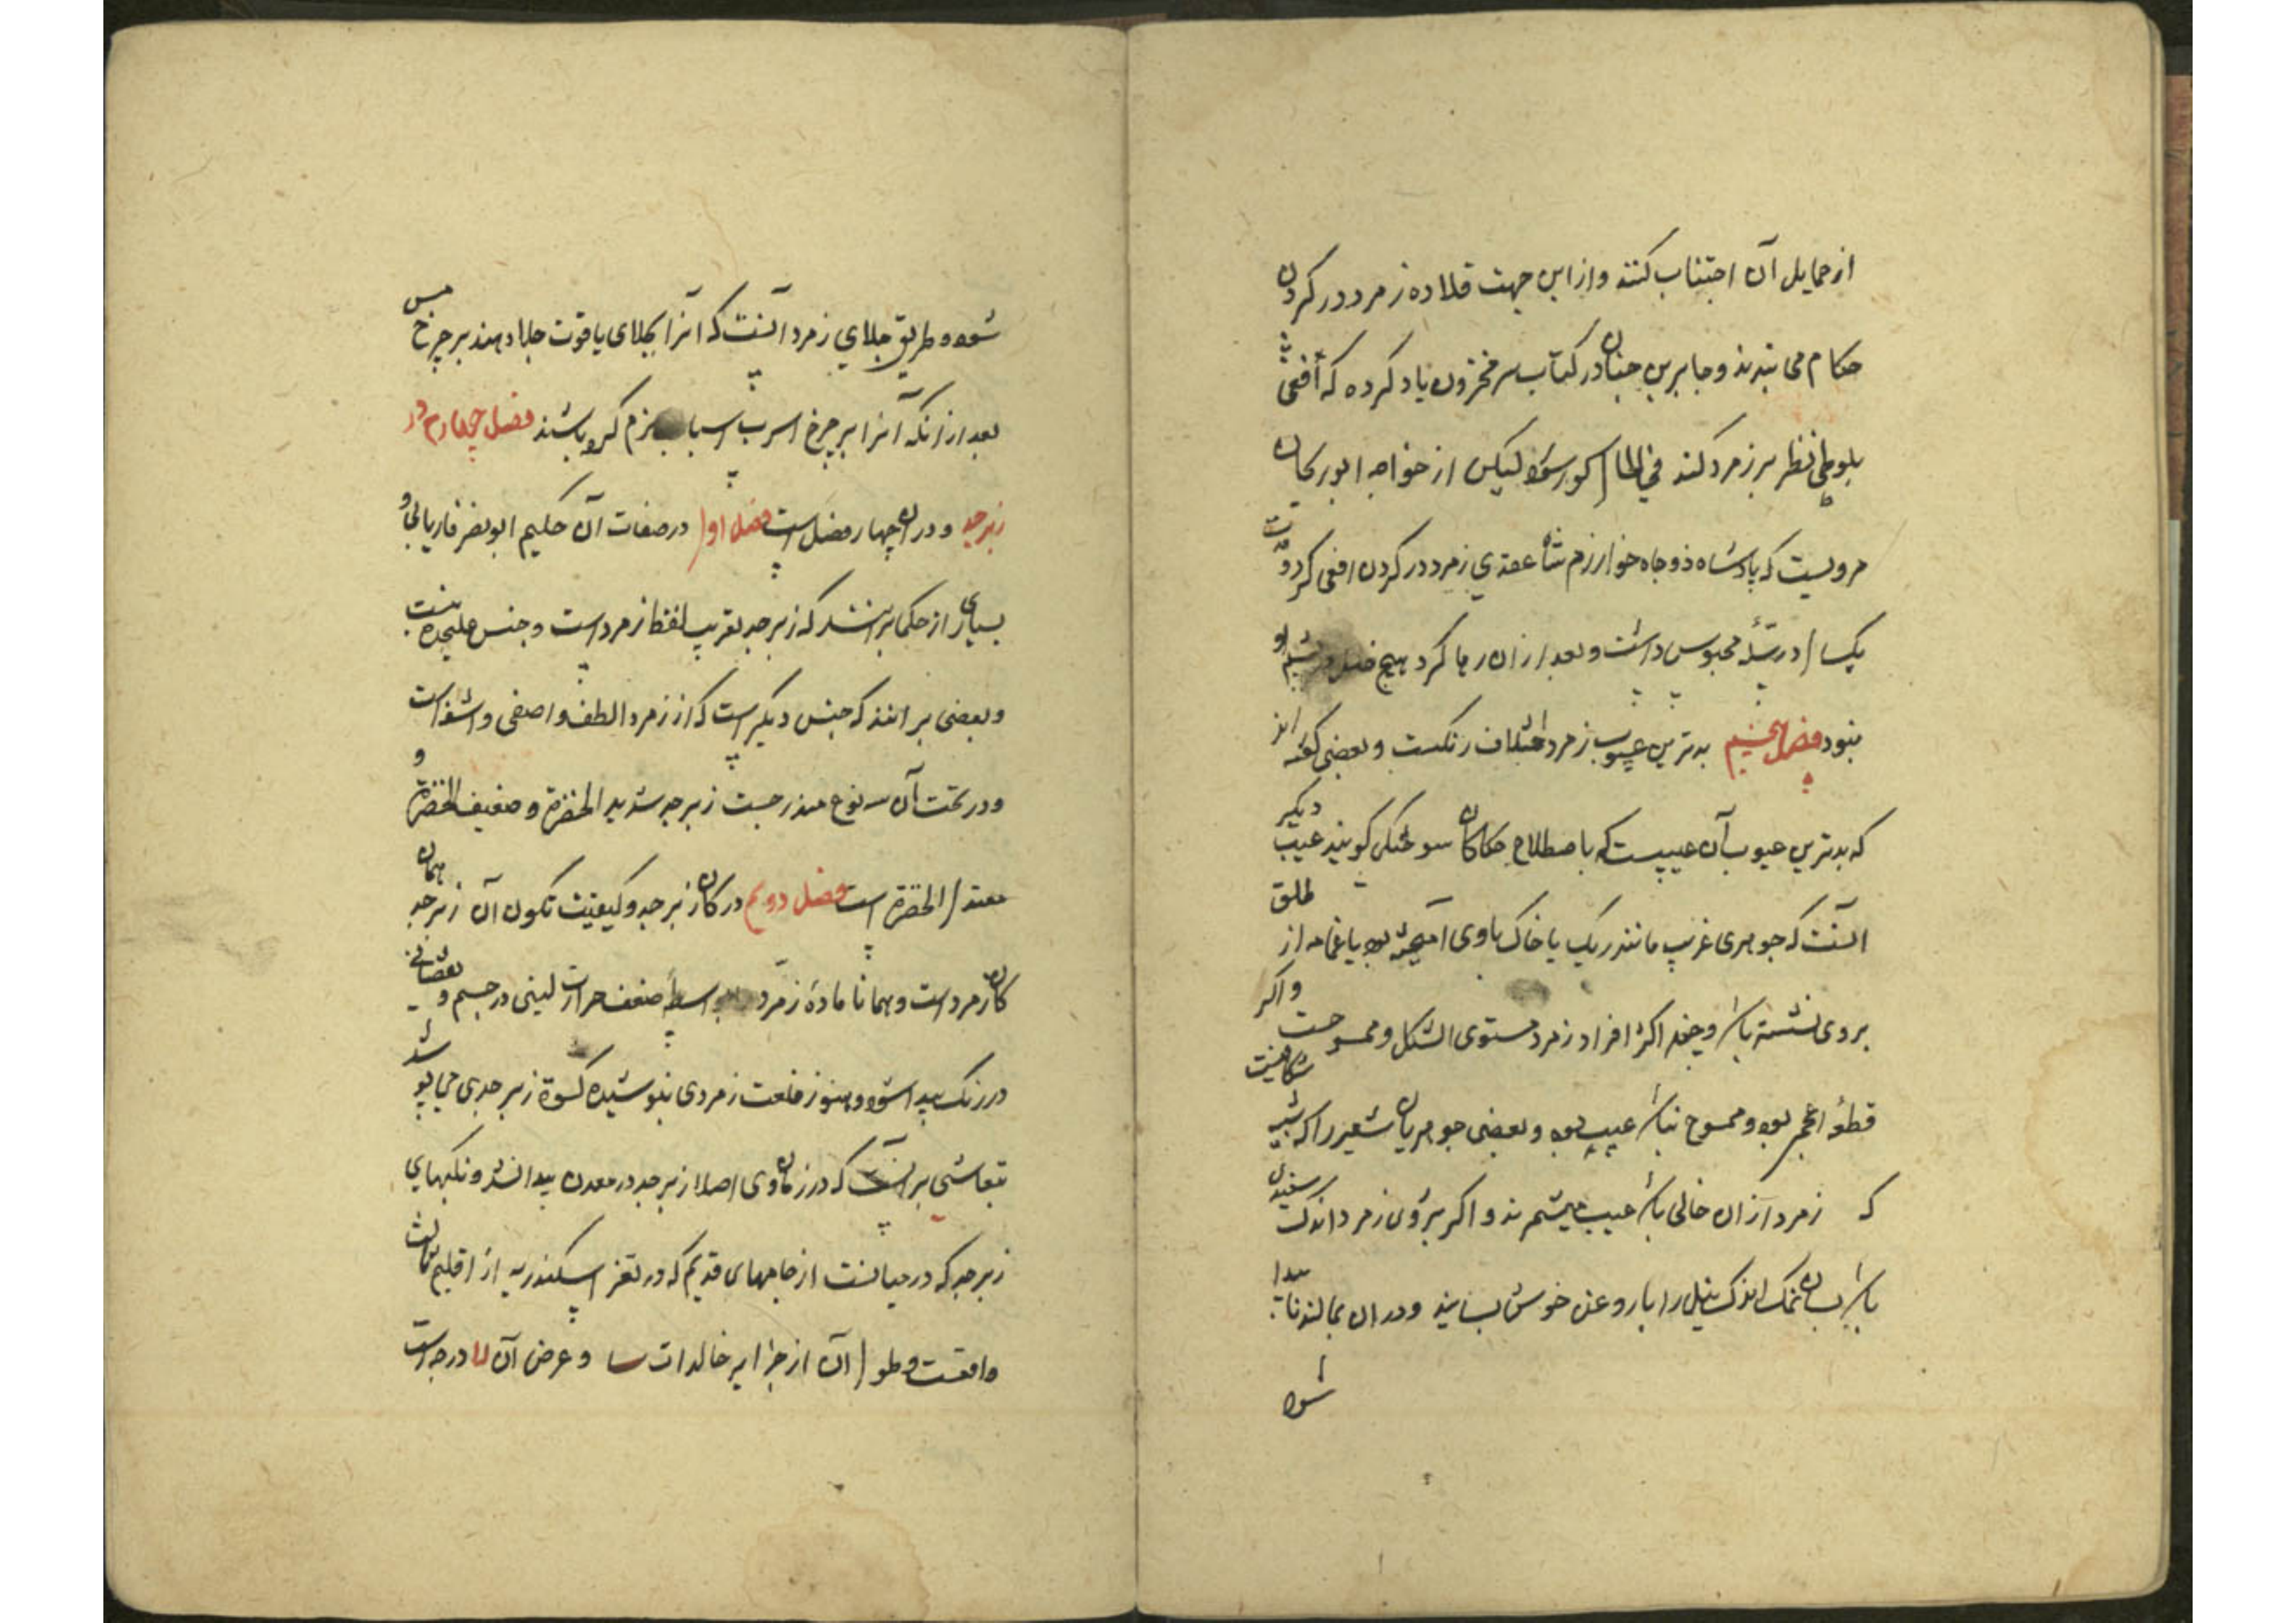 از حمایل آن اجتناب کنند و از این جهت قلاده زمرد در کردن
حکام می بندند و جابر بن حیان در کتاب سر مخزون یاد کرده که افعی
بلوطی نظر بر زمرد کند فی الحال کور شود لیکن از خواجه ابو ریحان
مرویست که پادشاه ذوجاه خوارزم شاه عقدی زمرد در کردن افعی کرد و قت
یکسال در سله محبوس داشت و بعد از ان رها کرد هیچ خلل در چشم او
نبود فصل پنجم بدترین عیوب زمرد اختلاف رنکست و بعضی کفته اند
که بدترین عیوب آن عیبیست که باصطلاح حکاکان سوختکی کویند عیب دیکر
آنست که جوهری غریب مانند ریک یا خاک باوی آمیخته بود یا غمامه از طلق
بروی نشسته باشد و چند اکثر افراد زمرد مستوی الشکل و ممسوحست و اکر
قطعه اعجر بود و ممسوح نباشد عیب بود و بعضی جوهریان شعیر را که شبیه شکافیست
که زمرد از ان خالی باشد عیب میشمرند و اکر بر روی زمرد اندک سفیدی
باشد بسان نمک اندک نیل را با روغن خوش بسایند و در ان بمالند نا پیدا
شود
شود و طریق جلای زمرد آنست که آنرا بجلای یاقوت جلا دهند بر چرخ مس
بعد از آنکه آنرا بر چرخ اسرب نرم کرده باشند فصل چهارم در
زبرجد و در ان چهار فصل است فصل اول در صفات آن حکیم ابو نصر فاریابی و
بسیاری از حکما برانند که زبرجد بقریب لفظ زمرد است و جنس علیحده نیست
و بعضی برانند که جنس دیکر است که از زمرد الطف و اصفی و اشف است
و در تحت آن سه نوع مندرجست زبرجد شدید الخضرة و ضعیف الخضرة و
معتدل الخضرة است فصل دویم در کان زبرجد و کیفیت تکون آن زبرجد همان
کان زمرد است و همانا ماده زمرد بواسطه ضعف حرارت لینی در جسم و نقصانی
در رنک پیدا شود و هنوز خلعت زمردی نپوشیده کسوة زبرجدی می پوشد
تیفاشی بر انست که در زمان وی اصلا زبرجد در معدن پیدا نشد و نکینهای
زبرجد که در میانست از خاتمهای قدیم که در ثغر اسکندریه از اقلیم ثالث
واقعست و طول آن از جزایر خالدات سا و عرض آن لا درجه است